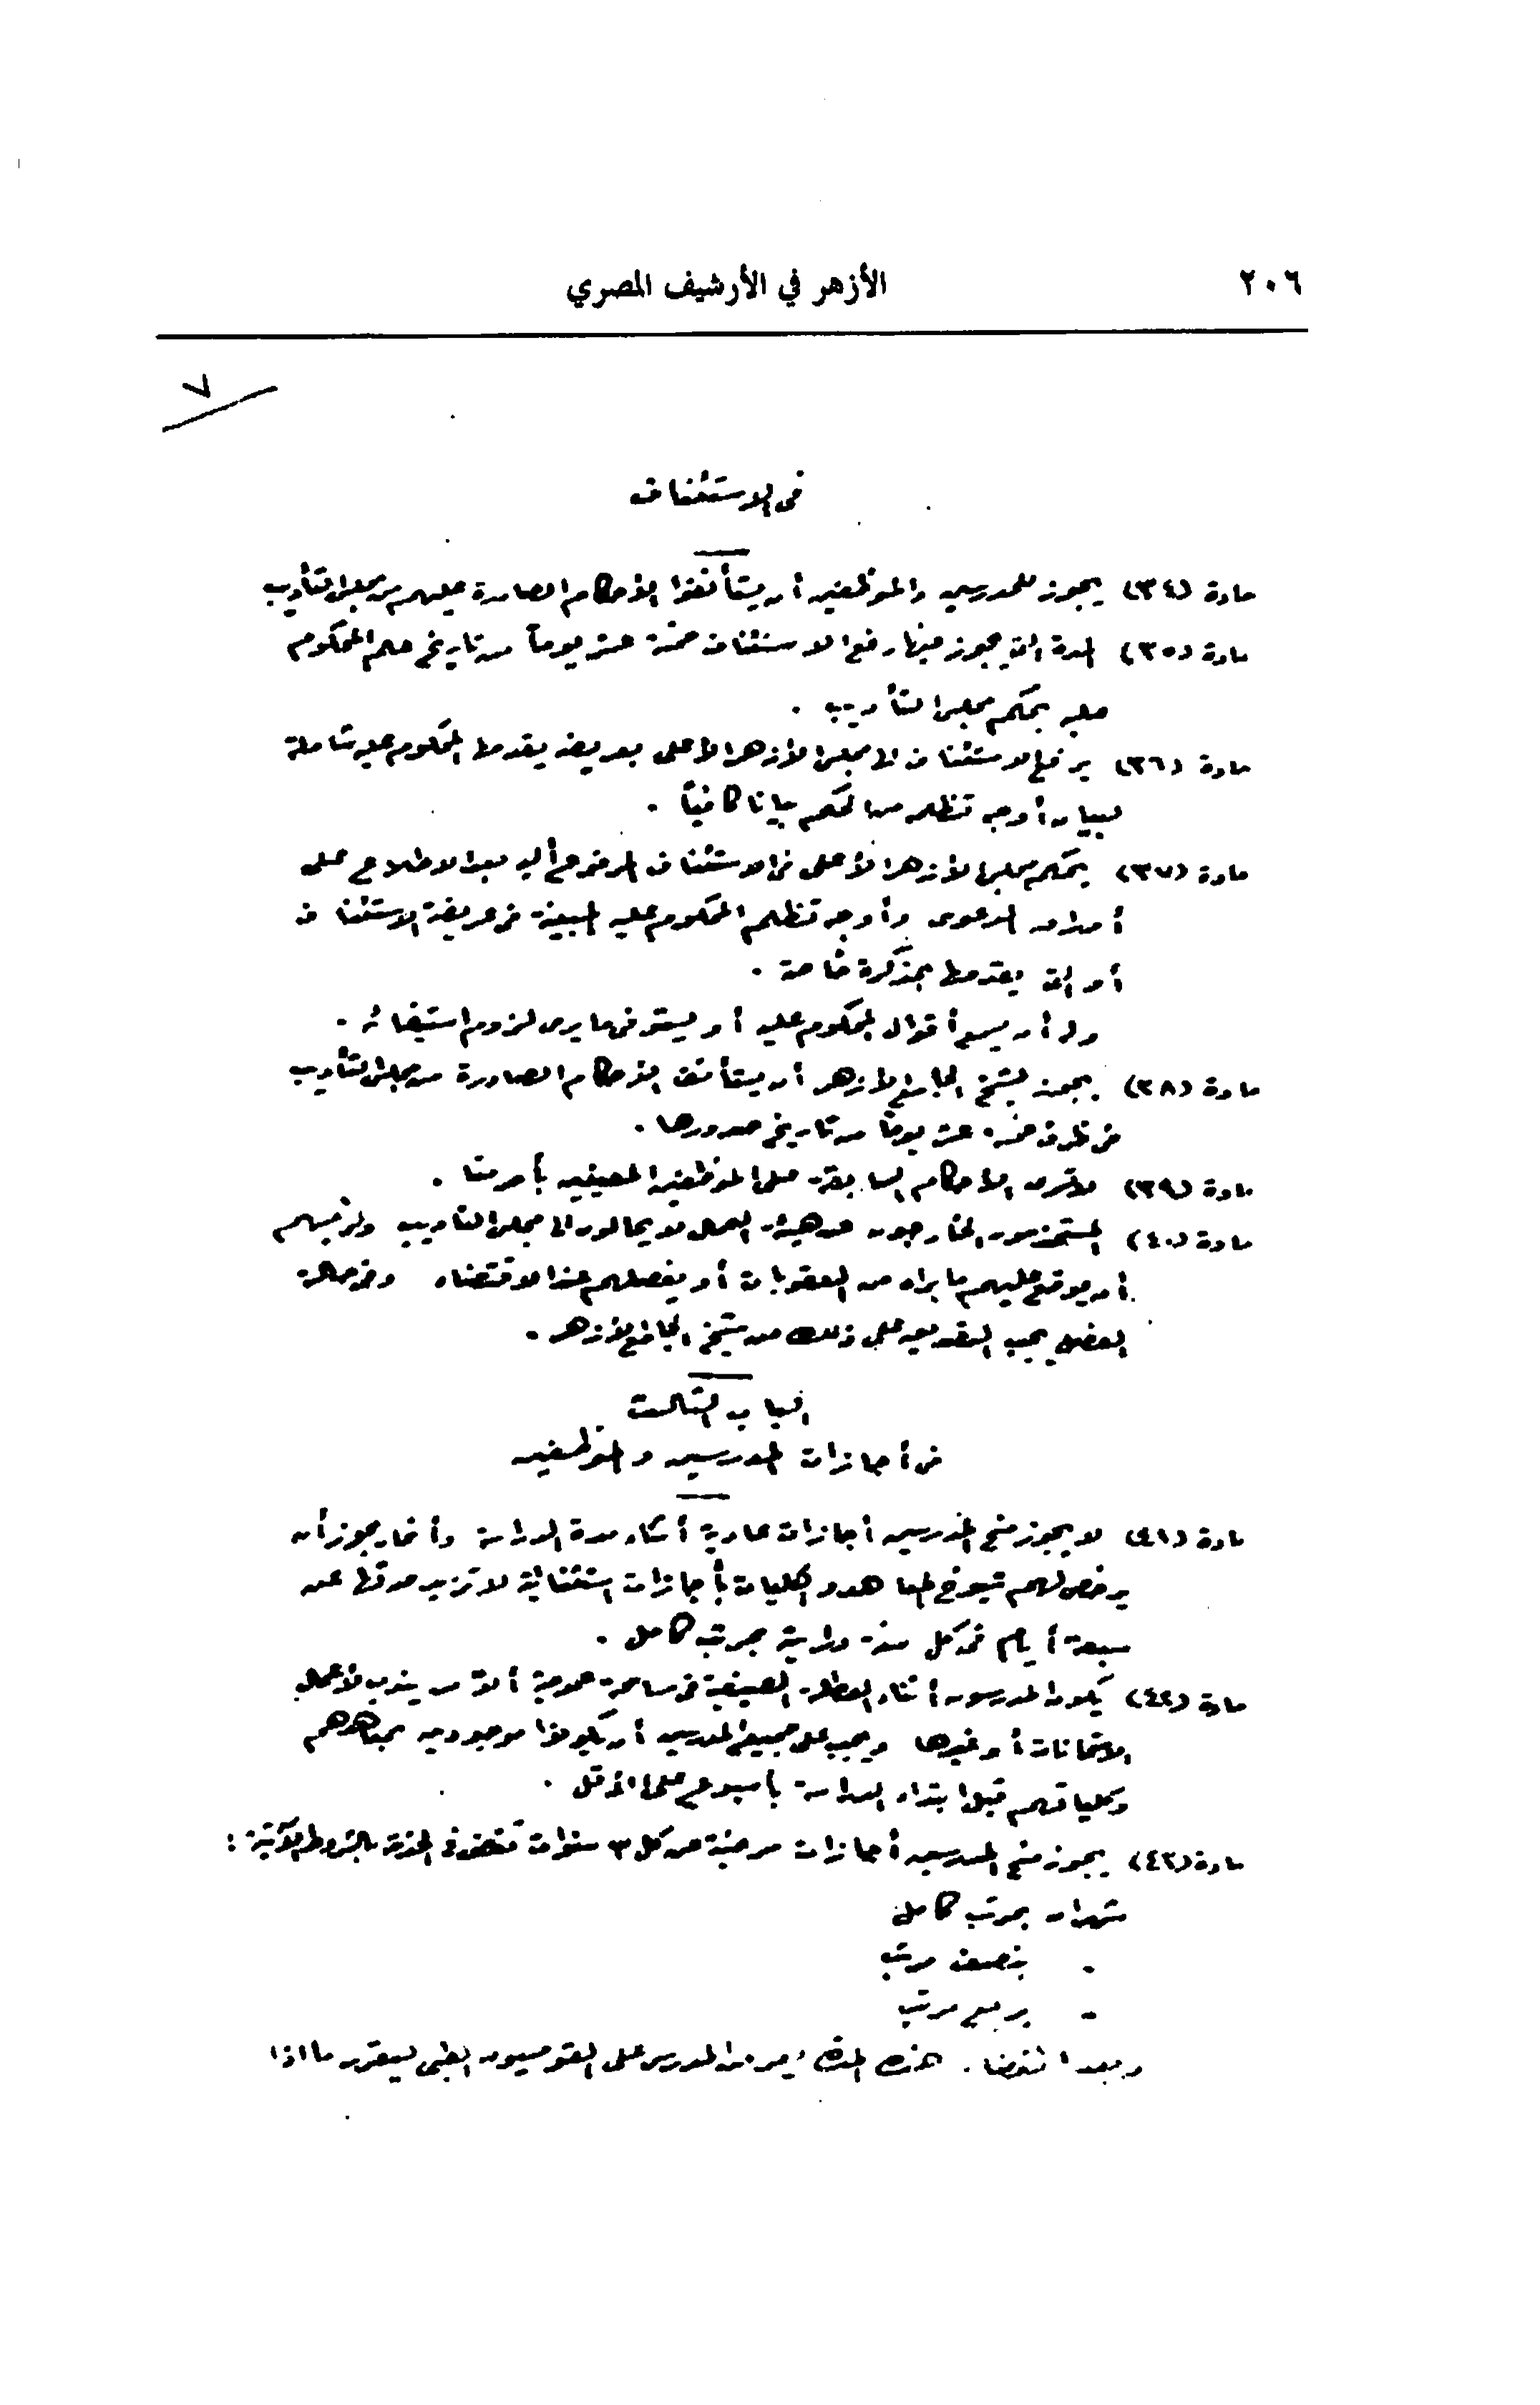 ٢٠٦
الأزهر في الأرشيف المصري
٧
فى الاستئناف
مادة (٣٤) يجوز للمدرسين والموظفين أن يستأنفوا الأحكام الصادرة عليهم من مجلس التأديب
مادة (٣٥) المدة التى يجوز فيها رفع الاستئناف خمسة عشر يوماً من تاريخ علم المحكوم
عليه بحكم مجلس التأديب .
مادة (٣٦) يرفع الاستئناف الى مجلس الأزهر الأعلى بعريضه يقدمها المحكوم عليه شاملة
لبيان أوجه تظلمه من الحكم بيانا كافياً .
مادة (٣٧) يحكم مجلس الأزهر الأعلى فى الاستئناف المرفوع أليه بعد الاطلاع على
أوراق الدعوى وأوجه تظلم المحكوم عليه المبينة فى عريضة الاستئناف
أو التى يقدمها بمذكرة خاصة .
وله أن يسمع أقوال المحكوم عليه أو يستوفى ما يرى لزوم استيفائه .
مادة (٣٨) يجوز لشيخ الجامع الأزهر أن يستأنف الأحكام الصادرة من مجلس التأديب
فى ظرف خمسه عشر يوماً من تاريخ صدورها .
مادة (٣٩) لا تسرى الأحكام السابقة على الموظفين المعينين بأمرنا .
مادة (٤٠) المستخدمون الخارجون عن هيئة العمال لا يحالون الى مجلس التأديب ولرئيسهم
أن يوقع عليهم ما يراه من العقوبات أو يفصلهم عند الاقتضاء وفى حالة
الفصل يجب التصديق على ذلك من شيخ الجامع الأزهر .
الباب الثالث
فى أجازات المدرسين والموظفين
مادة (٤١) لا يجوز منح المدرسين أجازات عادية أثناء مدة الدراسة وأنما يجوز أن
يرخص لهم شيوخ المعاهد والكليات بأجازات استثنائية لا تزيد مدتها عن
سبعة أيام فى كل سنة دراسية بمرتب كامل .
مادة (٤٢) يكون المدرسون أثناء العطلة الصيفية فى مسامحة عمومية ألا من يندب لأعمال
الامتحانات أو غيرها ويجب على جميع المدرسين أن يكونوا موجودين بمعاهدهم
وكلياتهم قبل ابتداء الدراسة بأسبوع على الأقل .
مادة (٤٣) يجوز منح المدرسين أجازات مرضية عن كل ٣ سنوات تمضى فى الخدمة بالشروط الآتية :
شهران بمرتب كامل
" بنصف مرتب
" بربع مرتب
وبعد انقضاء هذه المدة يعرض المدرس على القومسيون الطبى ليقرر ما اذا